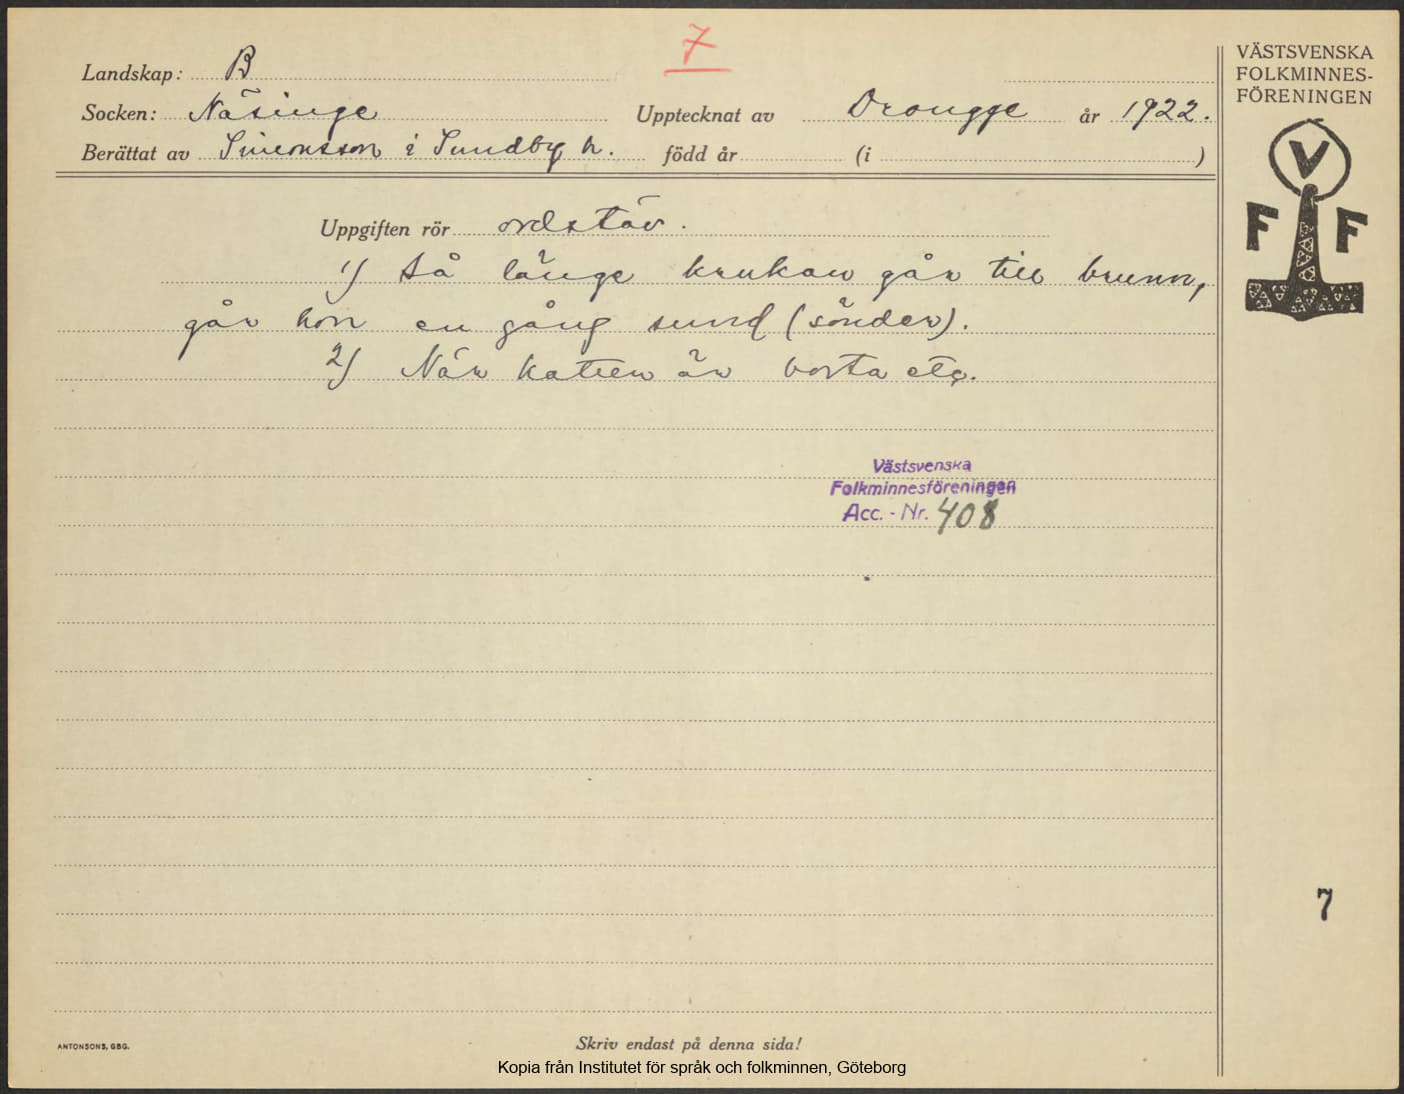 7
Landskap: B
Socken: Näsinge Upptecknat av Drougge år 1922.
Berättat av Simonsson i Sundby n. född år (i )
Uppgiften rör ordstäv.
1) Så länge krukan går till brunn,
går hon en gång sund (sönder).
2) När katten är borta etc.
Västsvenska
Folkminnesföreningen
Acc. - Nr. 408
VÄSTSVENSKA
FOLKMINNES-
FÖRENINGEN
V
F F
7
ANTONSONS, GBG.
Skriv endast på denna sida!
Kopia från Institutet för språk och folkminnen, Göteborg